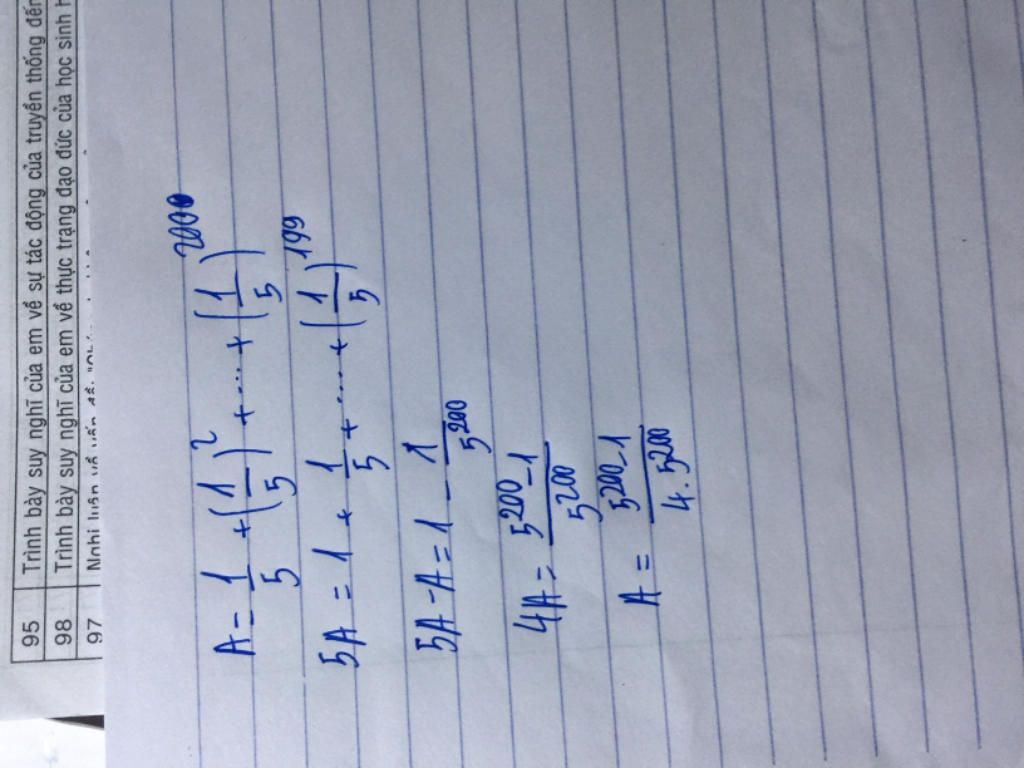 95 Trình bày suy nghĩ của em về sự tác động của truyền thống đến
98 Trình bày suy nghĩ của em về thực trạng đạo đức của học sinh
97 Nghị luận về vấn đề:
A = 1/5 + (1/5)^2 + ... + (1/5)^200
5A = 1 + 1/5 + ... + (1/5)^199
5A - A = 1 - 1/5^200
4A = 5^200-1/5^200
A = 5^200-1/4.5^200